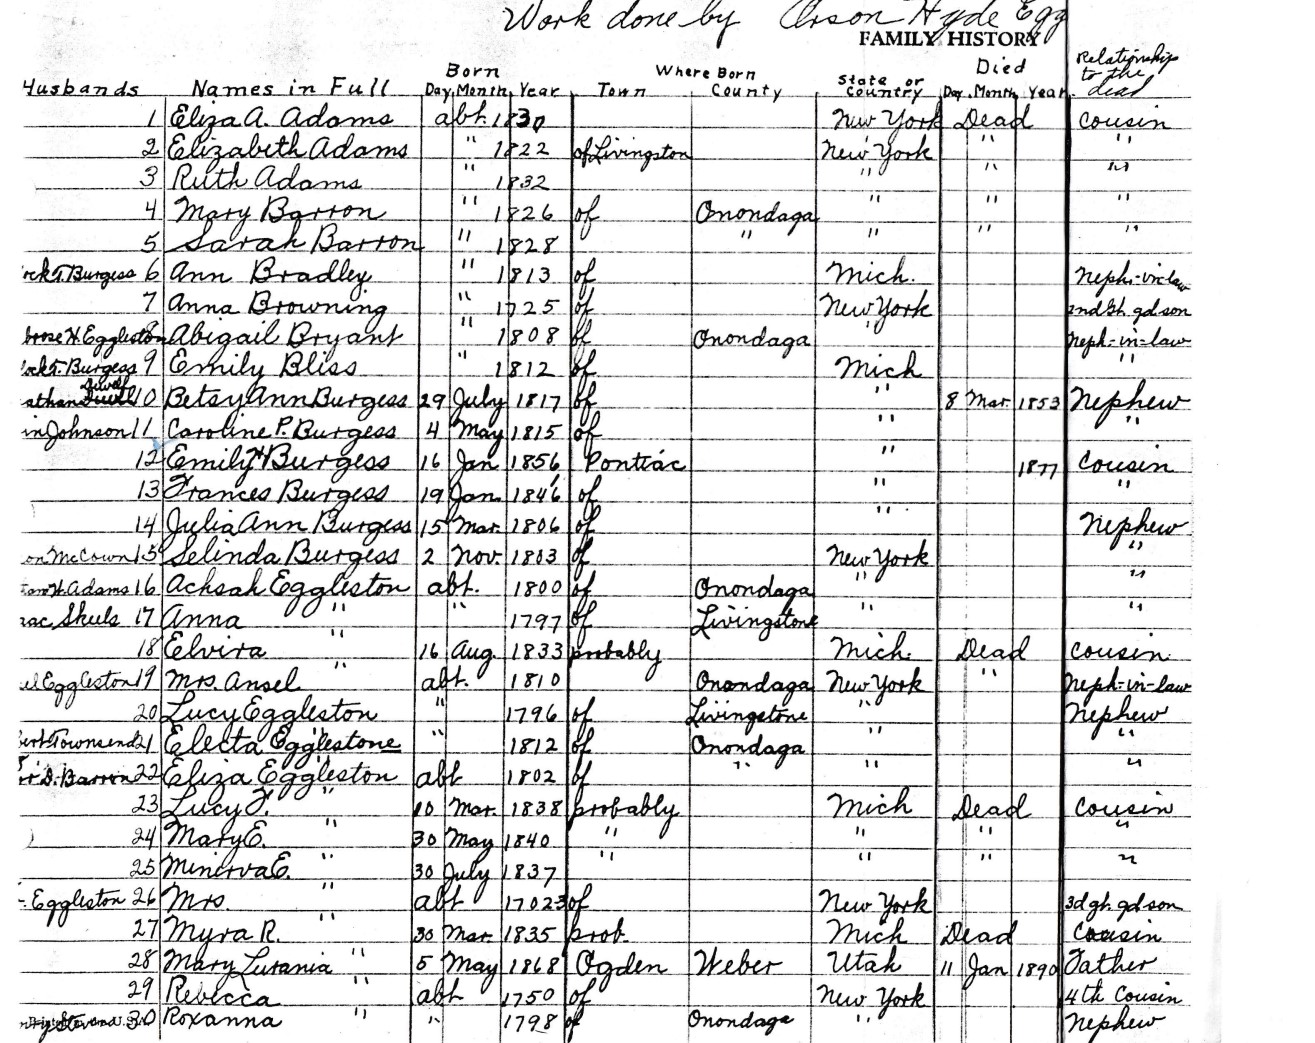 Work done by Orson Hyde Egg
FAMILY HISTORY
Husbands Names in Full Born Day Month Year Where Born Town County State or Country Died Day Month Year Relationship to the dead
1 Eliza A. Adams abt. 1830 New York Dead cousin
2 Elizabeth Adams " 1822 of Livingston New York " "
3 Ruth Adams " 1832 " " "
4 Mary Barron " 1826 of Onondaga " "
5 Sarah Barron " 1828 " " " "
ock T. Burgess 6 Ann Bradley " 1813 of Mich. Neph-in-law
7 Anna Browning " 1725 of New York 2nd Gt. gd son
brose H. Eggleston 8 Abigail Bryant " 1808 of Onondaga " Neph-in-law
ock T. Burgess 9 Emily Bliss " 1812 of Mich "
athan 10 Betsy Ann Burgess 29 July 1817 of " 8 Mar. 1853 Nephew
in Johnson 11 Caroline P. Burgess 4 May 1815 of " "
12 Emily H Burgess 16 Jan 1856 Pontiac " 1877 Cousin
13 Frances Burgess 19 Jan. 1846 of " "
14 Julia Ann Burgess 15 Mar. 1806 of " Nephew
on McCown 15 Selinda Burgess 2 Nov. 1803 of New York "
H. Adams 16 Achsah Eggleston abt. 1800 of Onondaga " "
aac Skeels 17 Anna " " 1797 of Livingstone " "
18 Elvira " 16 Aug. 1833 probably Mich. Dead cousin
el Eggleston 19 Mrs. Ansel " abt. 1810 Onondaga New York " Neph-in-law
20 Lucy Eggleston " 1796 of Livingstone " Nephew
bert Townsend 21 Electa Egglestone " 1812 of Onondaga " "
D. Barron 22 Eliza Eggleston abt 1802 of " " "
23 Lucy F. " 10 Mar. 1838 probably Mich Dead cousin
24 Mary E. " 30 May 1840 " " " "
25 Minerva E. " 30 July 1837 " " " "
Eggleston 26 Mrs. " abt 17023 of New York 3d gt. gd son
27 Myra R. " 30 Mar. 1835 prob. Mich Dead Cousin
28 Mary Lurania " 5 May 1868 Ogden Weber Utah 11 Jan 1890 Father
29 Rebecca " abt 1750 of New York 4th Cousin
30 Roxanna " " 1798 of Onondaga " Nephew